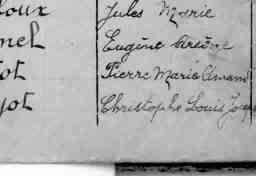 loux Jules Marie
nel Eugène Jérôme
ot Pierre Marie Amand
yot Christophe Louis Josep